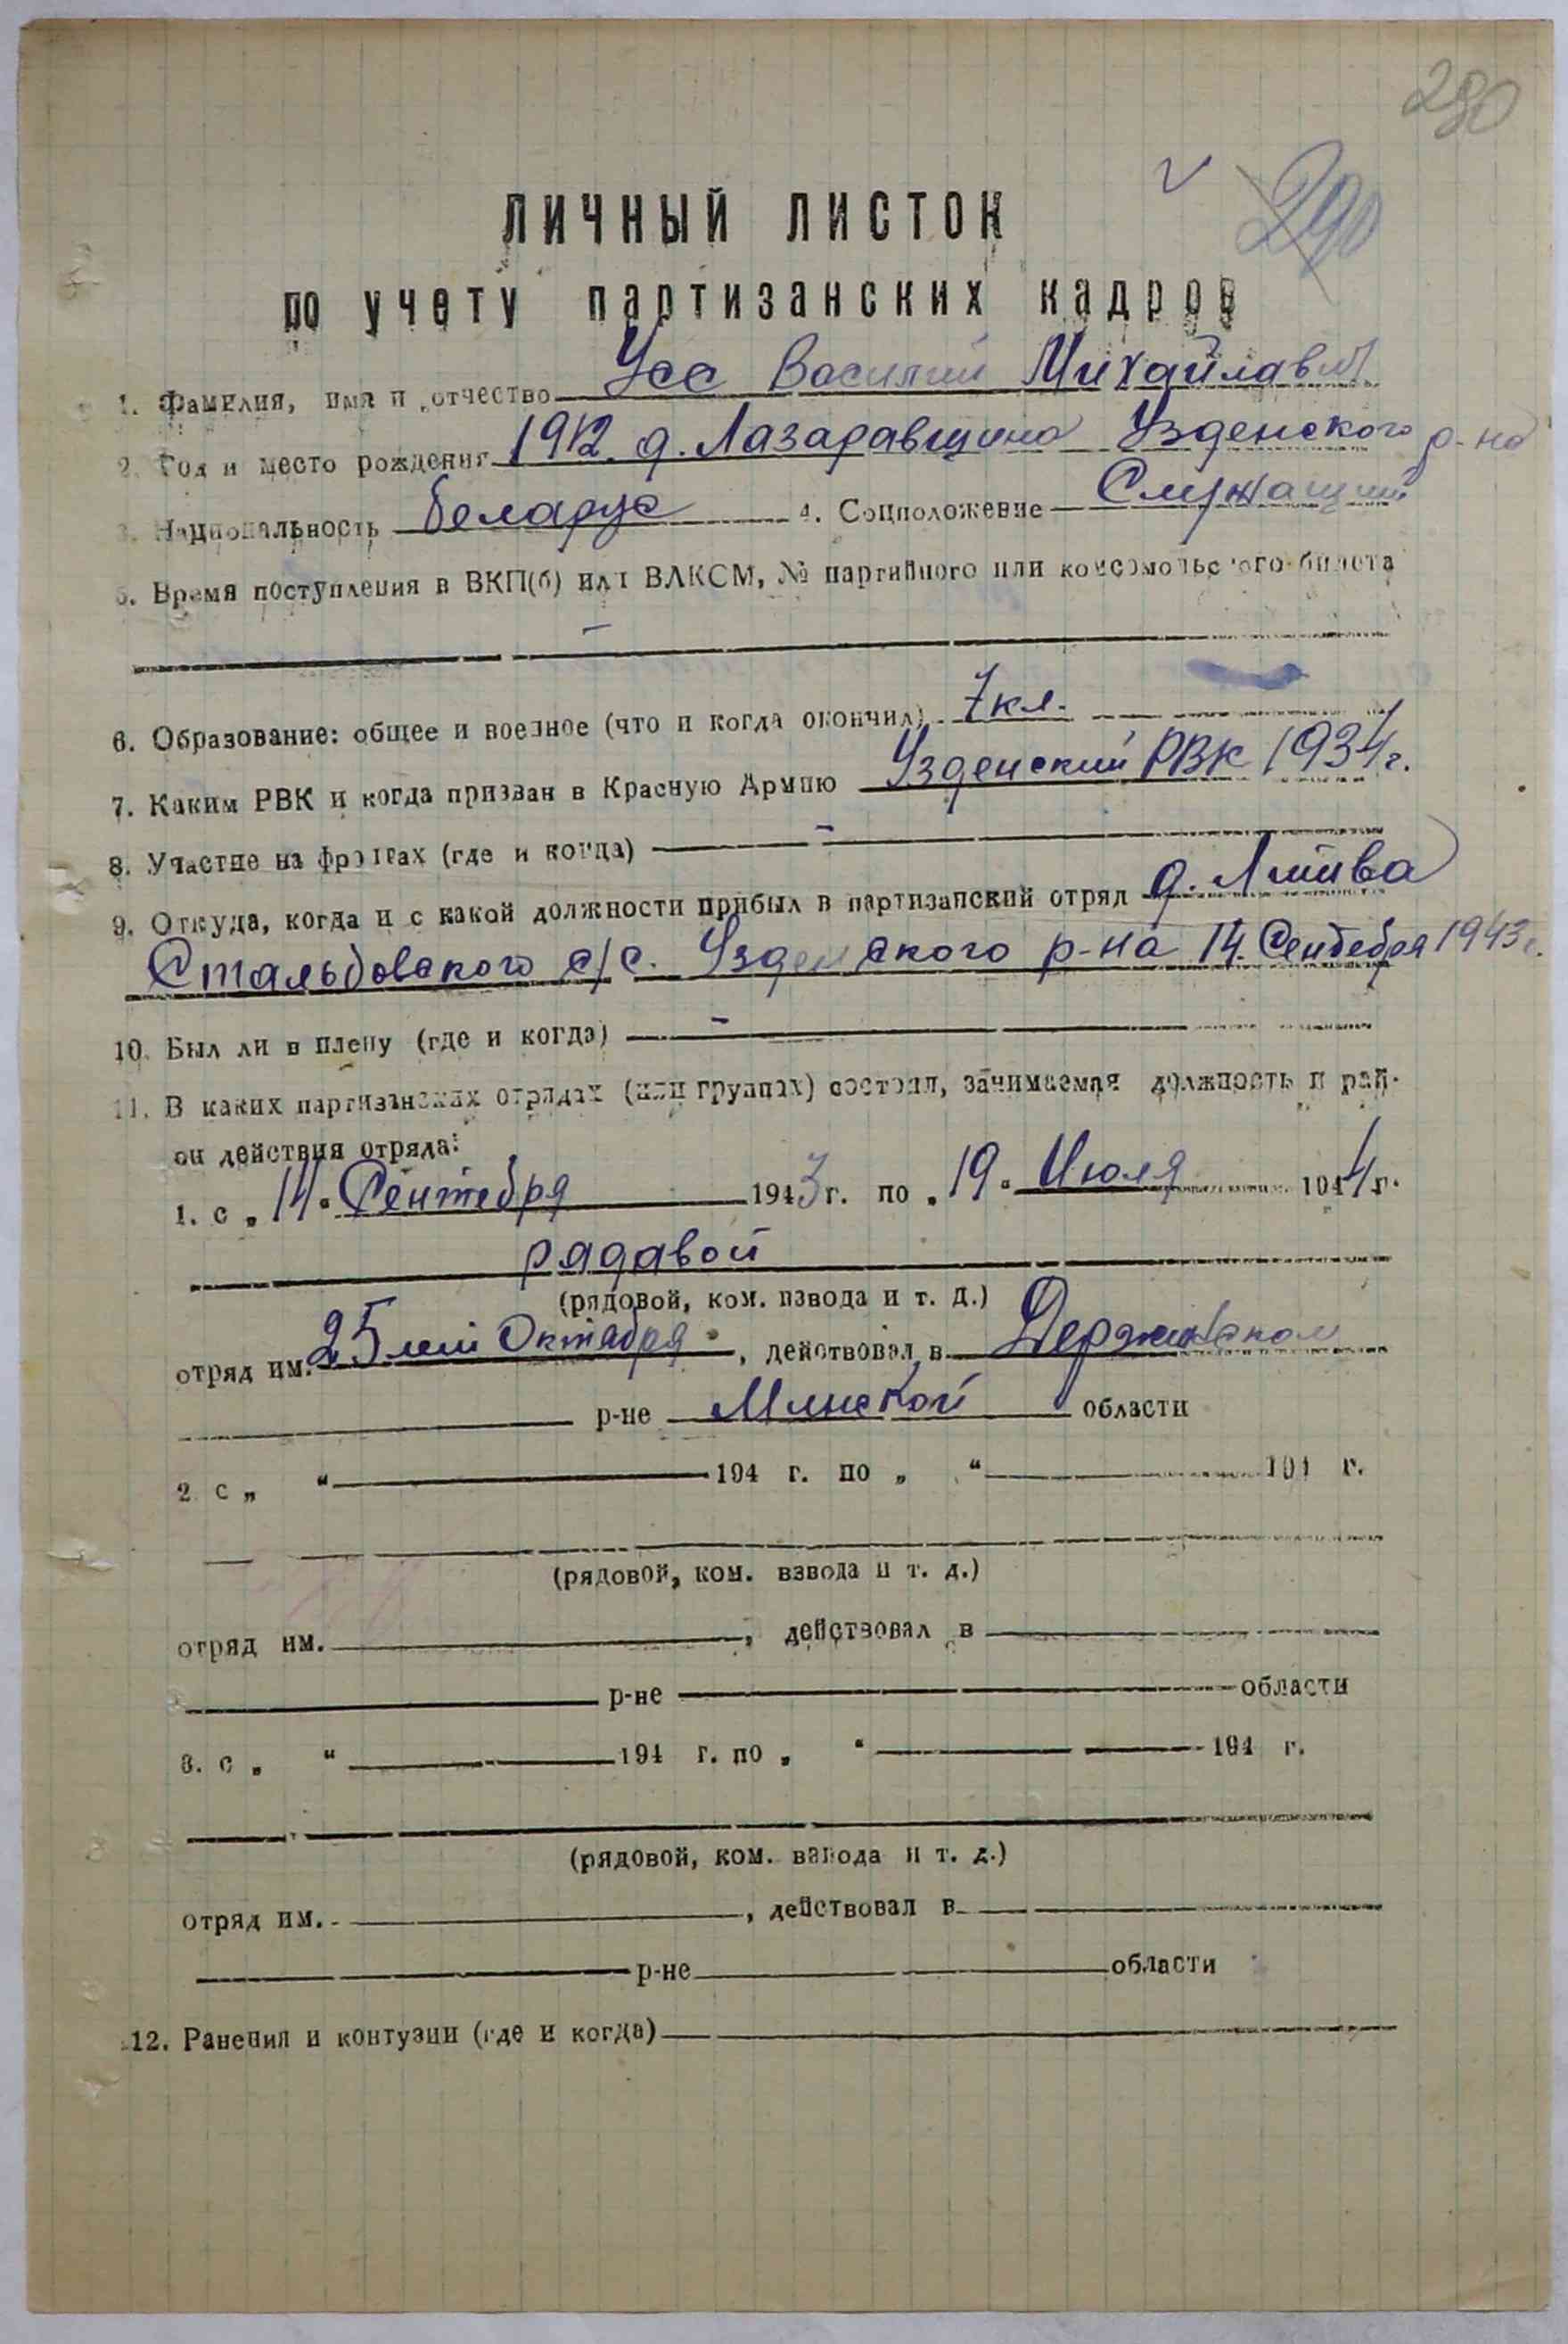 280
290
ЛИЧНЫЙ ЛИСТОК
по учету партизанских кадров
1. Фамилия, имя и отчество Усс Василий Михайлавич
2. Год и место рождения 1912 д. Лазаравщина Узденского р-на
3. Национальность беларус 4. Соцположение Служащий
5. Время поступления в ВКП(б) или ВЛКСМ, № партийного или комсомольского билета
–
6. Образование: общее и военное (что и когда окончил) 7 кл.
7. Каким РВК и когда призван в Красную Армию Узденский РВК 1934 г.
8. Участие на фронтах (где и когда) –
9. Откуда, когда и с какой должности прибыл в партизанский отряд д. Литва
Стальбовского с/с. Узденского р-на 14. Сентебря 1943 г.
10. Был ли в плену (где и когда) –
11. В каких партизанских отрядах (или группах) состоял, занимаемая должность и рай-
он действия отряда:
1. с „ 14 “ Сентебря 1943 г. по „ 19 “ Июля 1944 г.
рядавой
(рядовой, ком. взвода и т. д.)
отряд им. 25 лет Октября, действовал в Держинском
р-не Минской области
2. с „ “ 194 г. по „ “ 194 г.
(рядовой, ком. взвода и т. д.)
отряд им. , действовал в
р-не области
3. с „ “ 194 г. по „ “ 194 г.
(рядовой, ком. взвода и т. д.)
отряд им. , действовал в
р-не области
12. Ранения и контузии (где и когда)